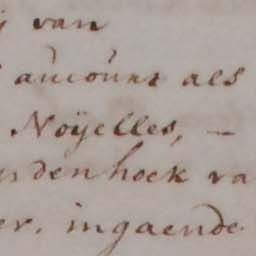 van
aucount als
Noÿelles, —
den hoek va
er. ingaende